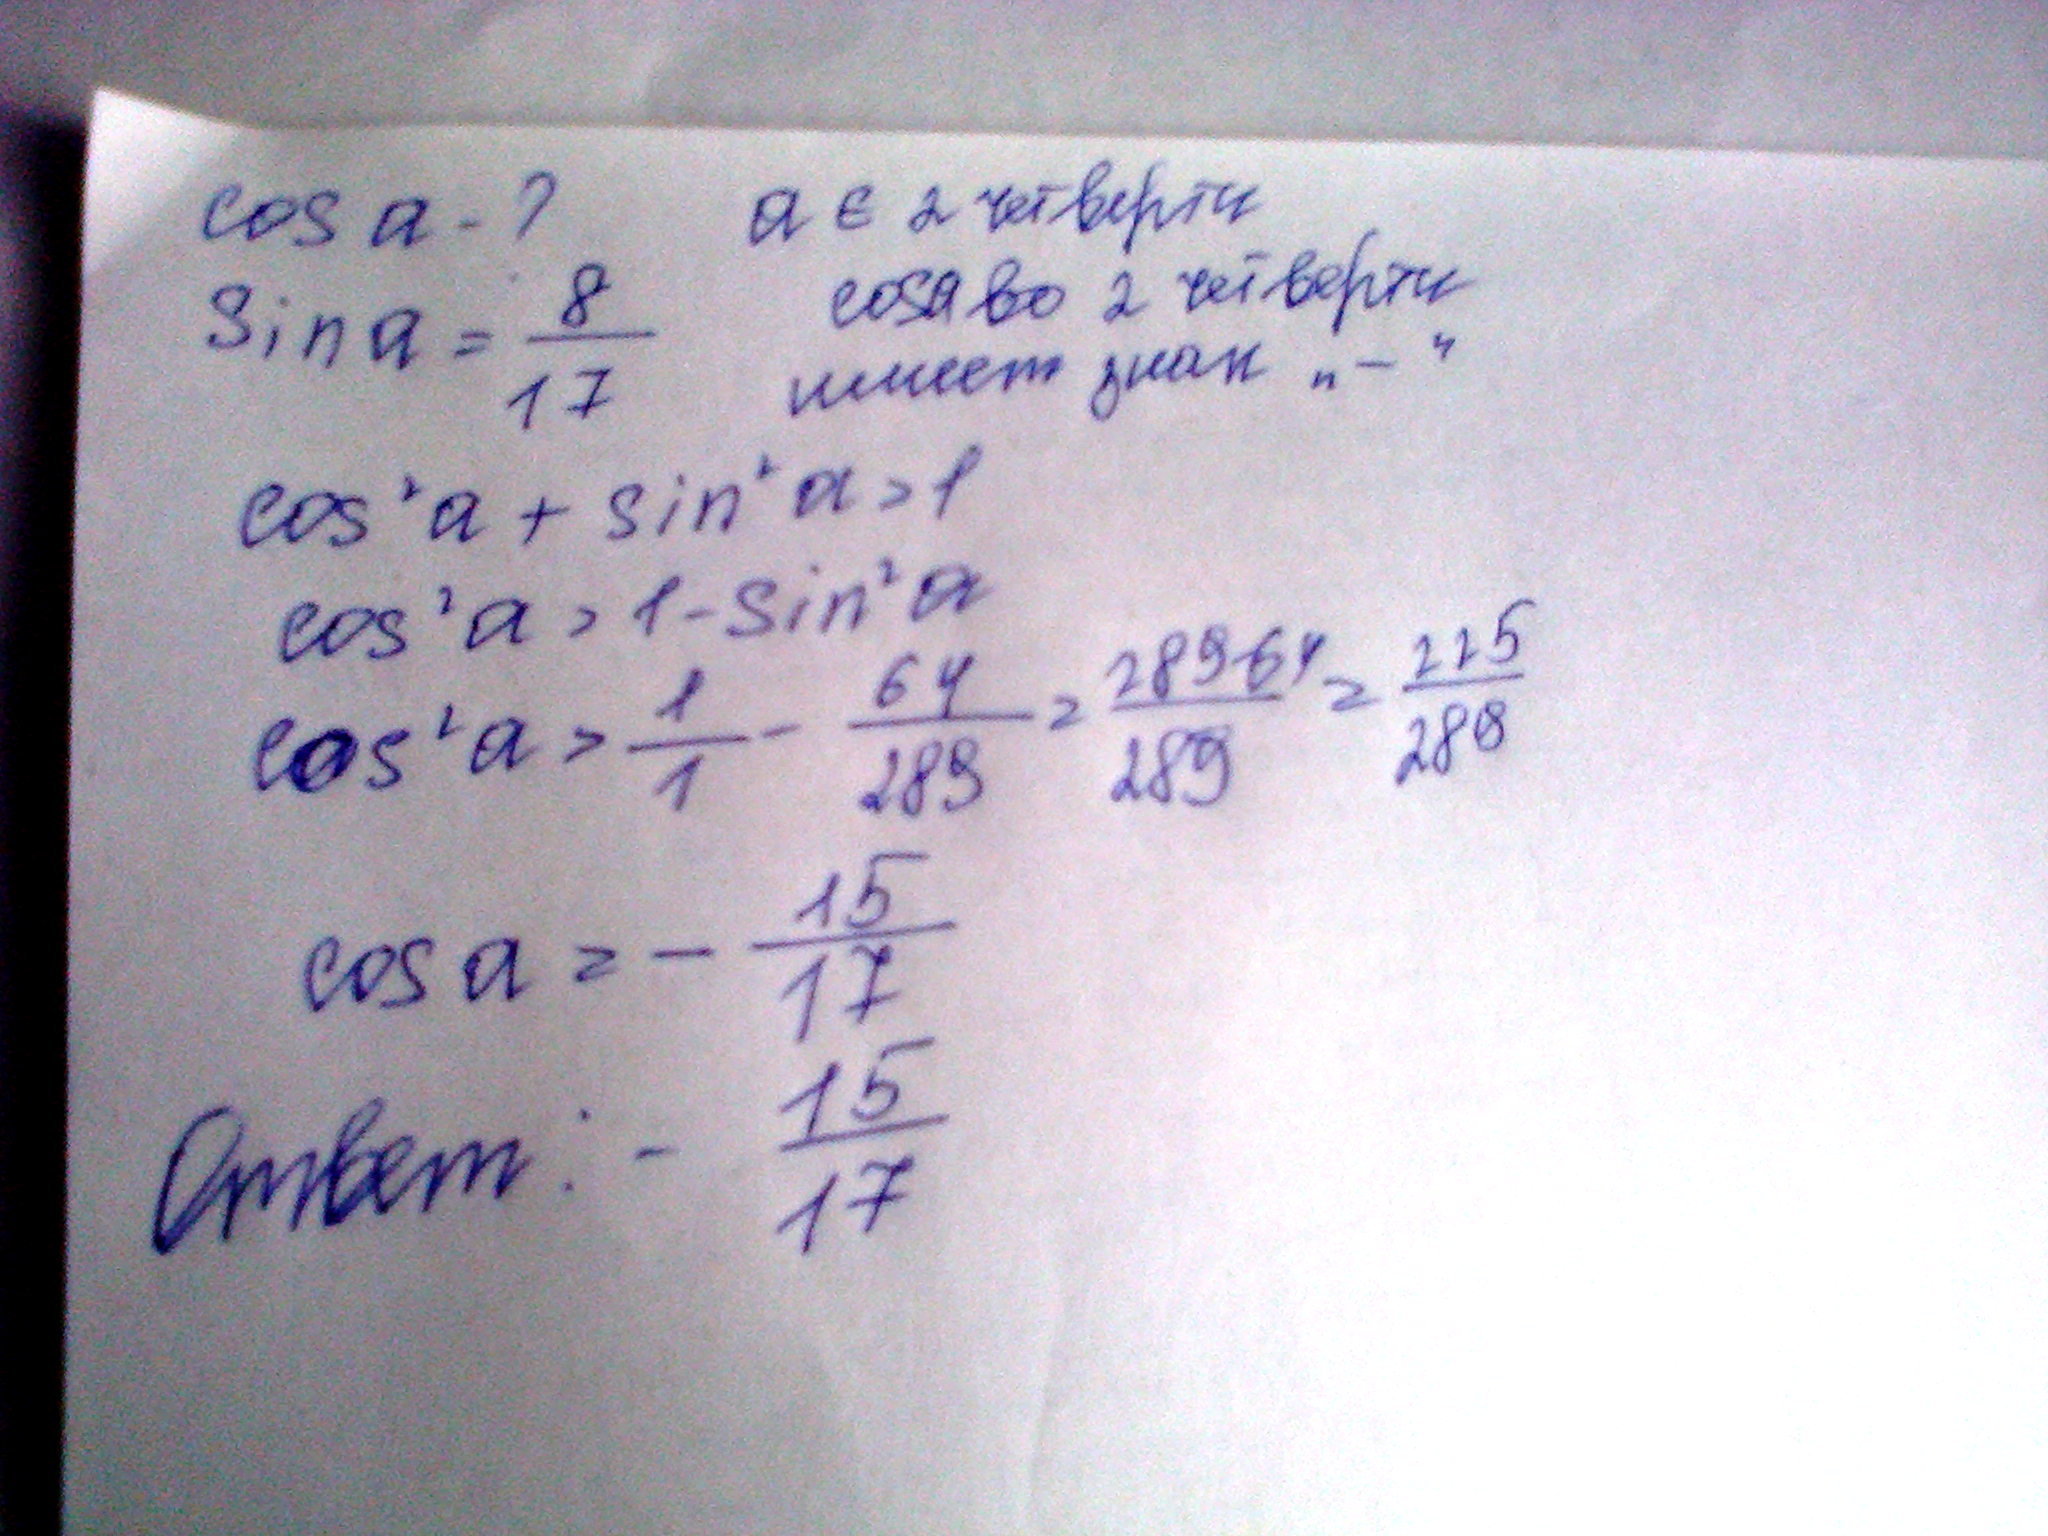 cos a - ?   a ∈ 2 четверти
sin a = 8/17   cos a во 2 четверти
имеет знак „ - “
cos² a + sin² a = 1
cos² a = 1 - sin² a
cos² a = 1/1 - 64/289 = 289-64/289 = 225/289
cos a = - 15/17
Ответ: - 15/17